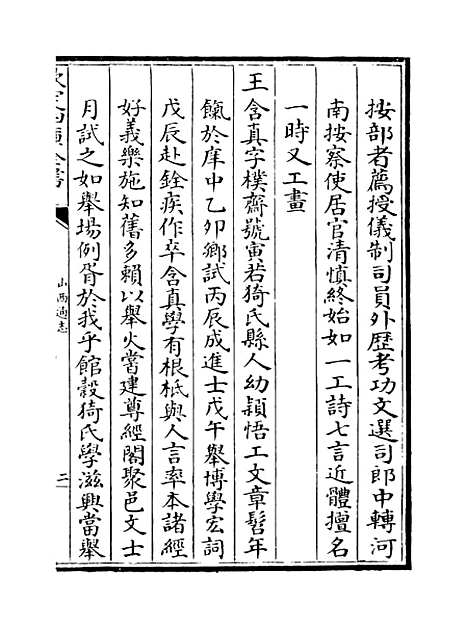 按部者薦授儀制司員外歴考功文選司郎中轉河
南按察使居官清慎終始如一工詩七言近體擅名
一時又工畫
王含真字樸齋號寅若猗氏縣人幼穎悟工文章髫年
餼於庠中乙卯鄉試丙辰成進士戊午舉博學宏詞
戊辰赴銓疾作卒含真學有根柢與人言率本諸經
好義樂施知舊多賴以舉火嘗建尊經閣聚邑文士
月試之如舉場例胥於我乎館穀猗氏學滋興當舉
欽定四庫全書
山西通志
二